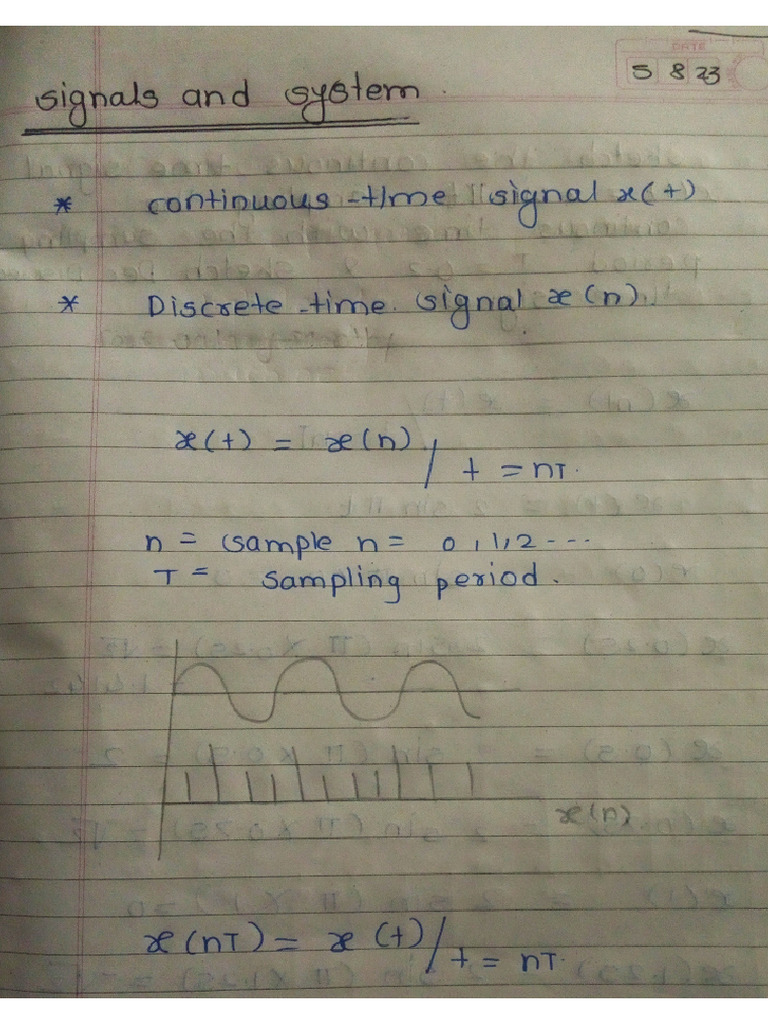 DATE
5 8 23
signals and system.
* continuous -time signal x(t)
* Discrete -time. signal x(n).
x(t) = x(n) / t = nT.
n = sample n = 0,1,2 ---
T = sampling period.
x(n)
x(nT) = x(t)/t = nT.